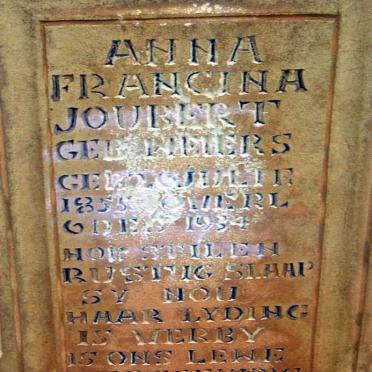 ANNA
FRANCINA
JOUBERT
GEB
JULIE
OVERL
6 DES 1934
HOE STIL EN
RUSTIG SLAAP
SY NOU
HAAR LYDING
IS VERBY
IS ONS LEWE